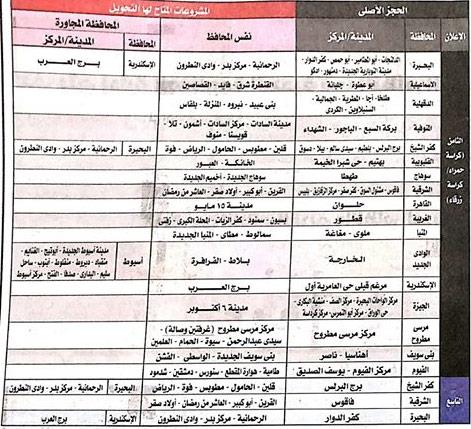 الحجز الأصلى
المشروعات المتاح لها التحويل
الإعلان
المحافظة
المدينة/المركز
نفس المحافظ
المحافظة المجاورة
المحافظة
المدينة/المركز
الثامن
(كراسة
حمراء/
كراسة
زرقاء)
البحيرة
الدلنجات - أبو المطامير - أبو حمص - كفر الدوار -
مدينة النوبارية الجديدة - دمنهور - ادكو
الرحمانية - مركز بدر - وادى النطرون
الإسكندرية
برج العرب
الاسماعيلية
أبو عطوة - جلبانة
القنطرة شرق - فايد - القصاصين
الدقهلية
طلخا - أجا - المطرية - الجمالية -
السنبلاوين - الكردى
بنى عبيد - نبروه - المنزلة - بلقاس
المنوفية
بركة السبع - الباجور - الشهداء
مدينة السادات - مركز السادات - أشمون - تلا -
قويسنا - منوف
كفر الشيخ
برج البرلس - بلطيم - سيدى سالم - بيلا - دسوق
قلين - مطوبس - الحامول - الرياض - فوة
البحيرة
الرحمانية - مركز بدر - وادى النطرون
القليوبية
بهتيم - حى شبرا الخيمة
الخانكة - العبور
سوهاج
طهطا
سوهاج الجديدة - أخميم الجديدة
الشرقية
فاقوس - مشتول السوق - كفر صقر - مركز الزقازيق - بلبيس
القرين - أبو كبير - أولاد صقر - العاشر من رمضان
القاهرة
حلوان
مدينة ١٥ مايو
الغربية
قطور
بسيون - سمنود - كفر الزيات - المحلة الكبرى - زفتى
المنيا
ملوى - مغاغة
سمالوط - مطاى - المنيا الجديدة
الوادى
الجديد
الخارجة
بلاط - الفرافرة
أسيوط
مدينة أسيوط الجديدة - أبوتيج - الغنايم -
منفلوط - أبنوب - ساحل
سليم - البدارى - صدفا - الفتح - مركز أسيوط
الإسكندرية
مرغم قبلى حى العامرية أول
برج العرب
الجيزة
مركز الواحات البحرية - مركز الصف - منشية البكارى -
حى الوراق - مركز أبو النمرس - مركز كرداسة
مدينة ٦ أكتوبر
مرسى
مطروح
مركز مرسى مطروح
مركز مرسى مطروح (غرفتين وصالة) -
سيدى عبدالرحمن - سيوة - الحمام - العلمين
بنى سويف
أهناسيا - ناصر
بنى سويف الجديدة - الواسطى - الفشن
الفيوم
مركز الفيوم - يوسف الصديق
طامية - هوارة المقطع - سنورس - دمشقين - شدموه
التاسع
كفر الشيخ
برج البرلس
قلين - الحامول - مطوبس - فوة - الرياض
البحيرة
الرحمانية - مركز بدر - وادى النطرون
الشرقية
فاقوس
القرين - أبو كبير - العاشر من رمضان - أولاد صقر
البحيرة
كفر الدوار
الرحمانية - مركز بدر - وادى النطرون
الإسكندرية
برج العرب